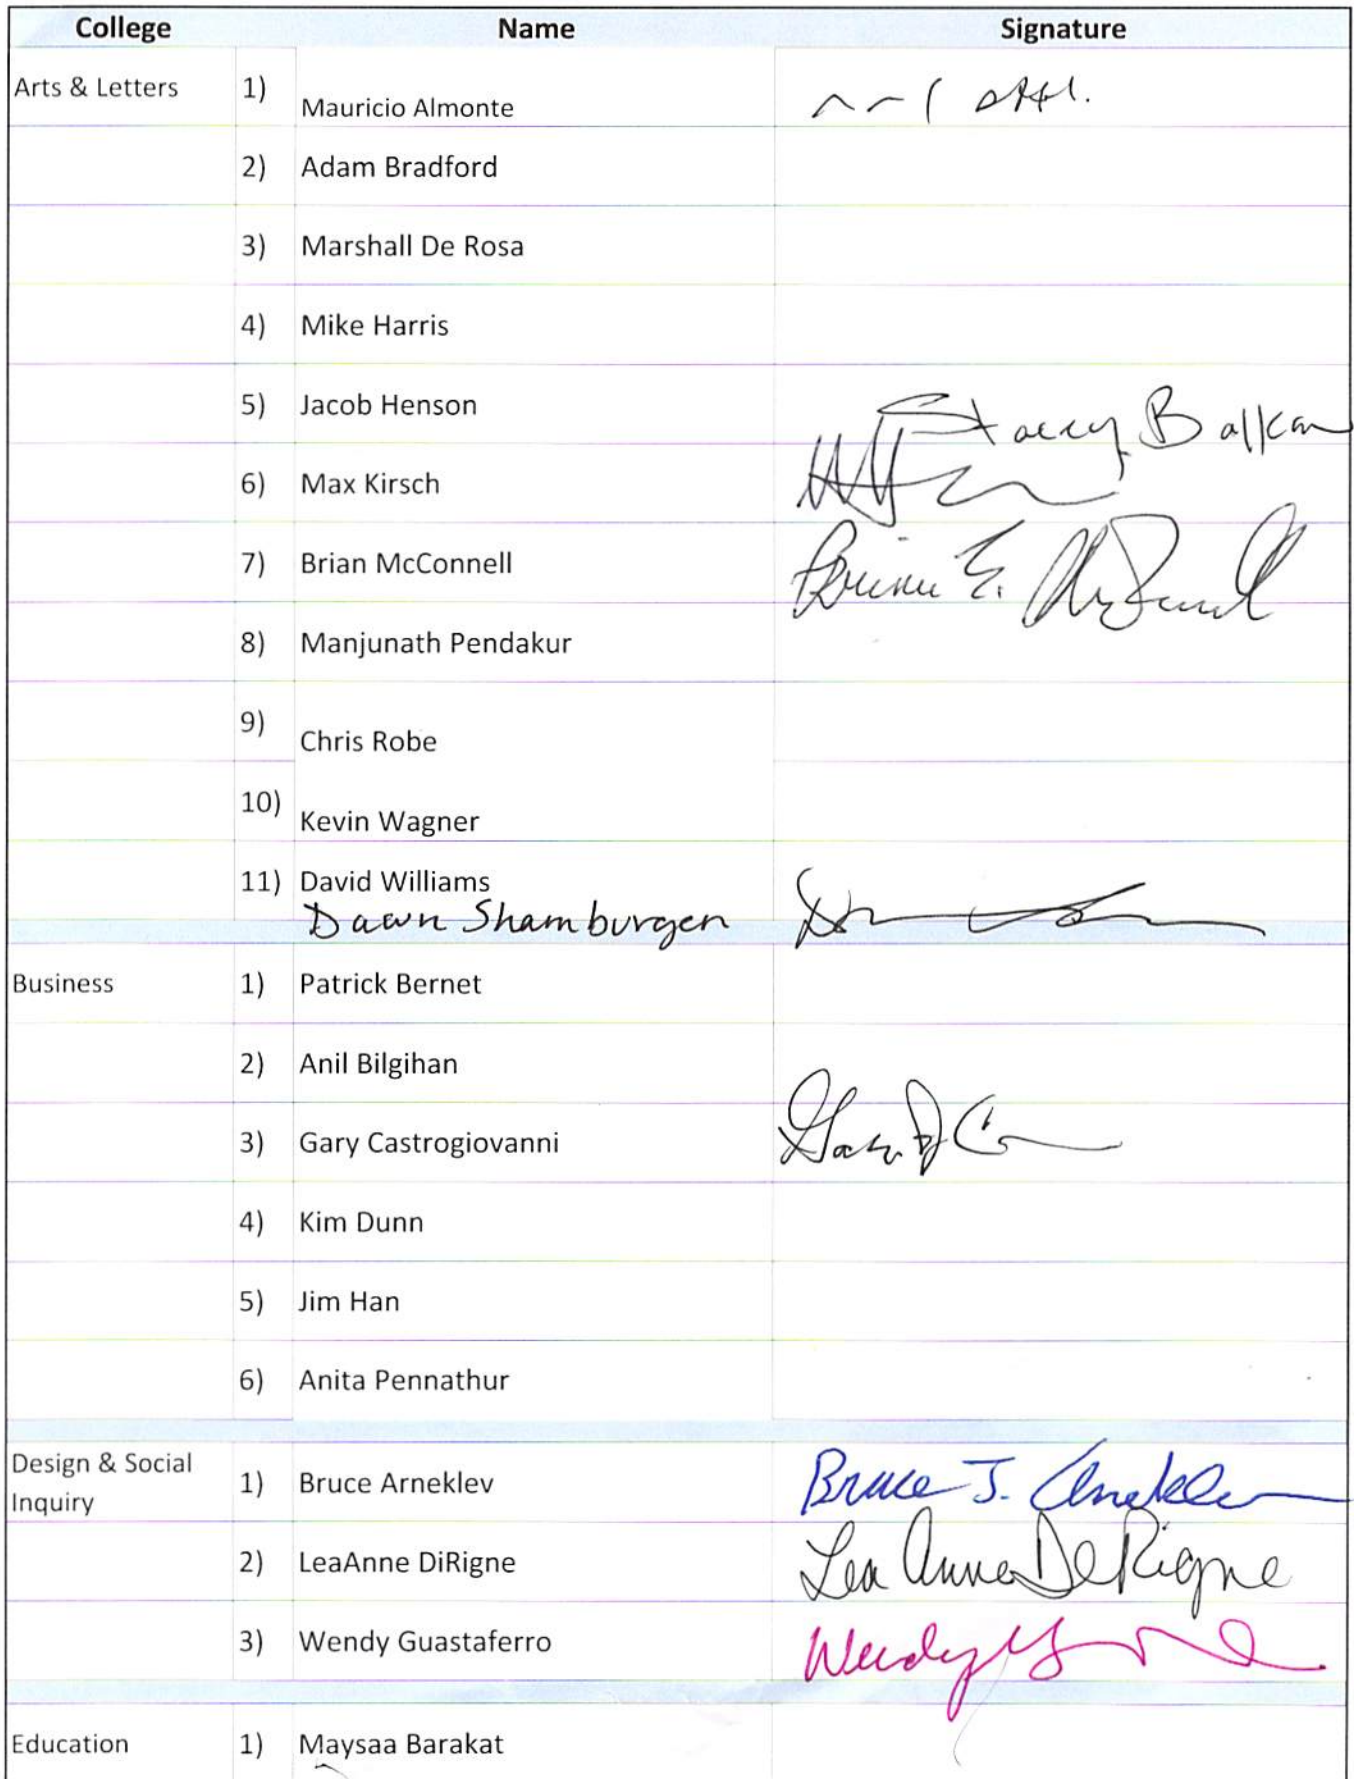 College Name Signature
Arts & Letters 1) Mauricio Almonte
2) Adam Bradford
3) Marshall De Rosa
4) Mike Harris
5) Jacob Henson Stacey Balkan
6) Max Kirsch
7) Brian McConnell Brian E. McConnell
8) Manjunath Pendakur
9) Chris Robe
10) Kevin Wagner
11) David Williams
Dawn Shamburger
Business 1) Patrick Bernet
2) Anil Bilgihan
3) Gary Castrogiovanni
4) Kim Dunn
5) Jim Han
6) Anita Pennathur
Design & Social
Inquiry 1) Bruce Arneklev Bruce J. Arneklev
2) LeaAnne DiRigne Lea Anne DeRigne
3) Wendy Guastaferro Wendy
Education 1) Maysaa Barakat